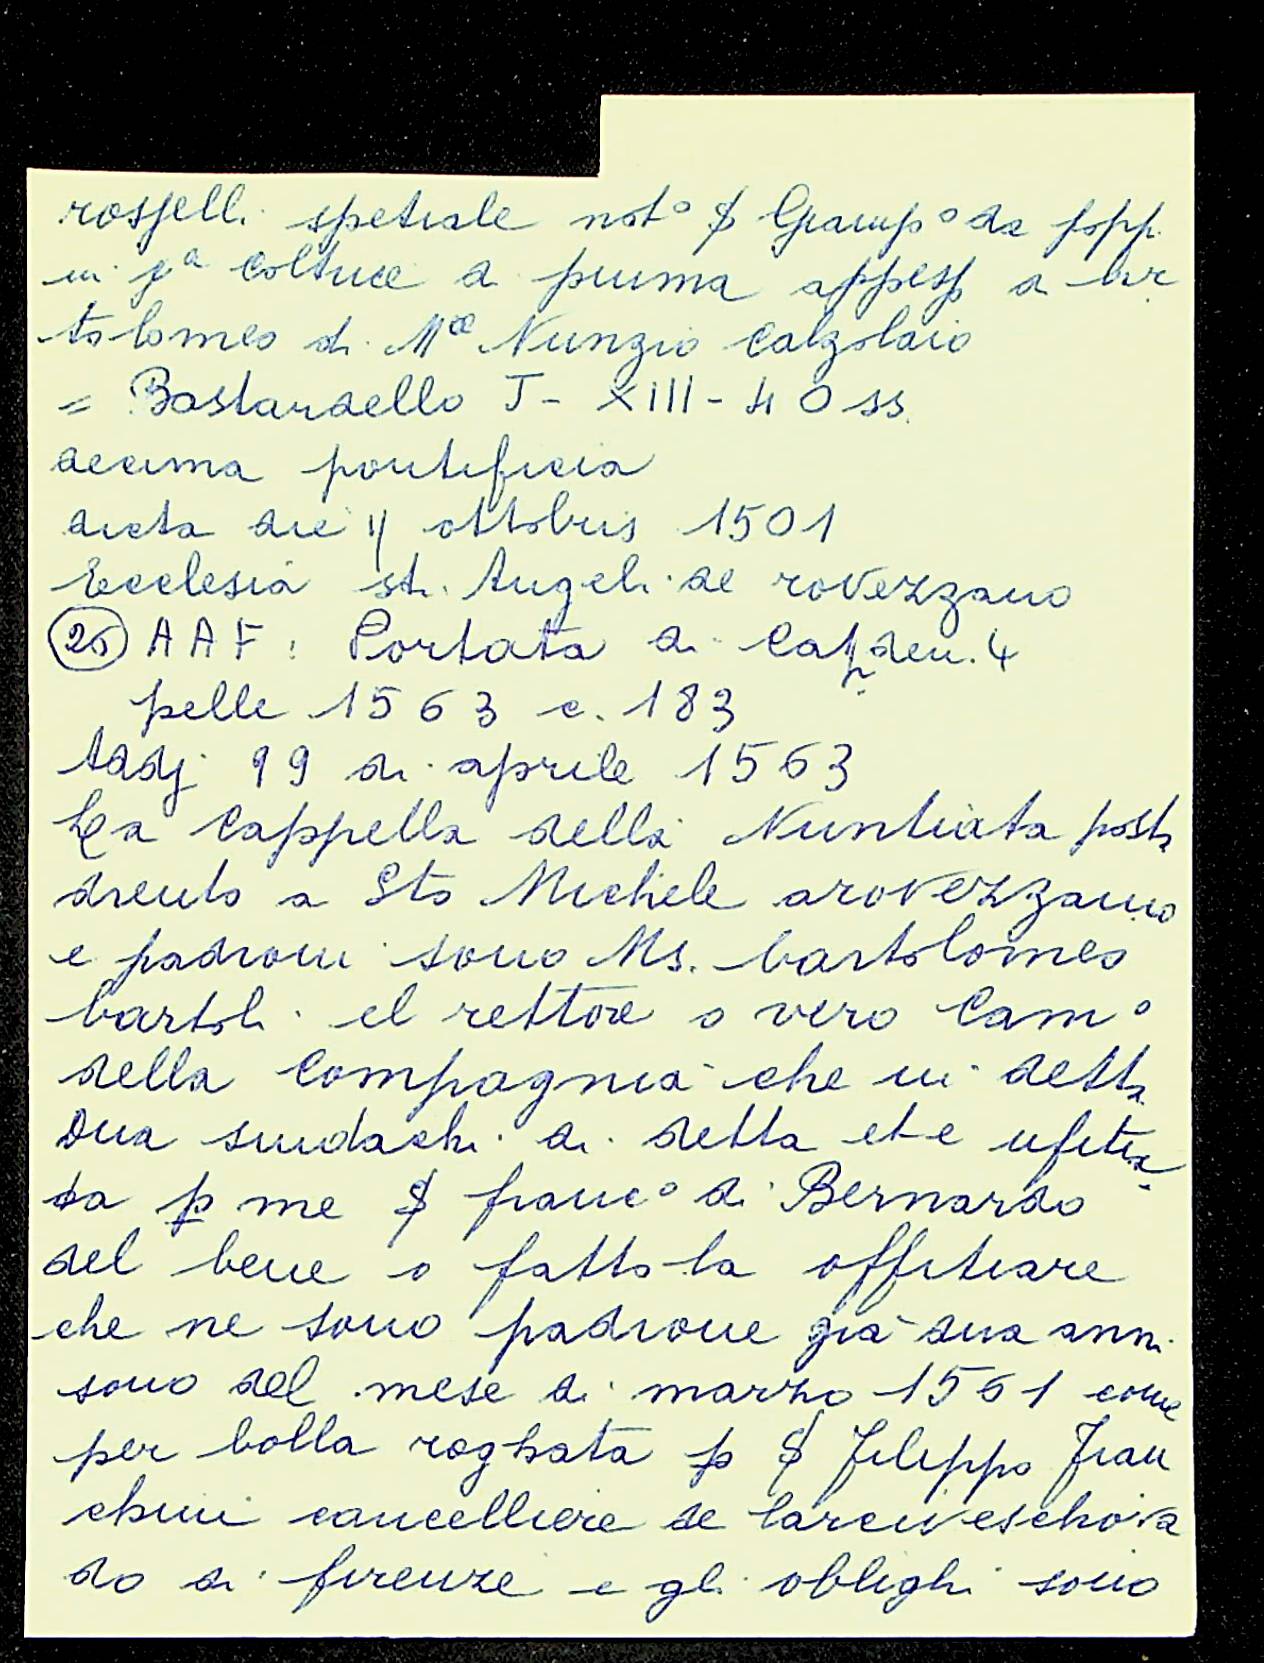 rosselli spetiale not° S Giamp° da popp.
in jª coltrice di piuma appesº a bar
tolomeo di Mº Nunzio calzolaio
= Bastardello J - XIII - 40 ss.
decima pontificia
dicta die 11 ottobris 1501
Ecclesia sti. Angeli de rovezzano
(26) AAF: Portata di Cap den. 4
pelle 1563 c. 183
Addj 99 di aprile 1563
La Cappella della Nuntiata posta
drento a Sto Michele arovezzano
e padroni sono Ms. bartolomeo
bartoli el rettore o vero Cam°
della Compagnia che in detta
Dua sindachi di detta et e ufitia
ta p me S franc° di Bernardo
del bene o fatto la offitiare
che ne sono padrone già dua anni
sono del mese di marzo 1561 come
per bolla roghata p S Filippo Fran
chini cancelliere de larciveschova
do di firenze e gli oblighi sono